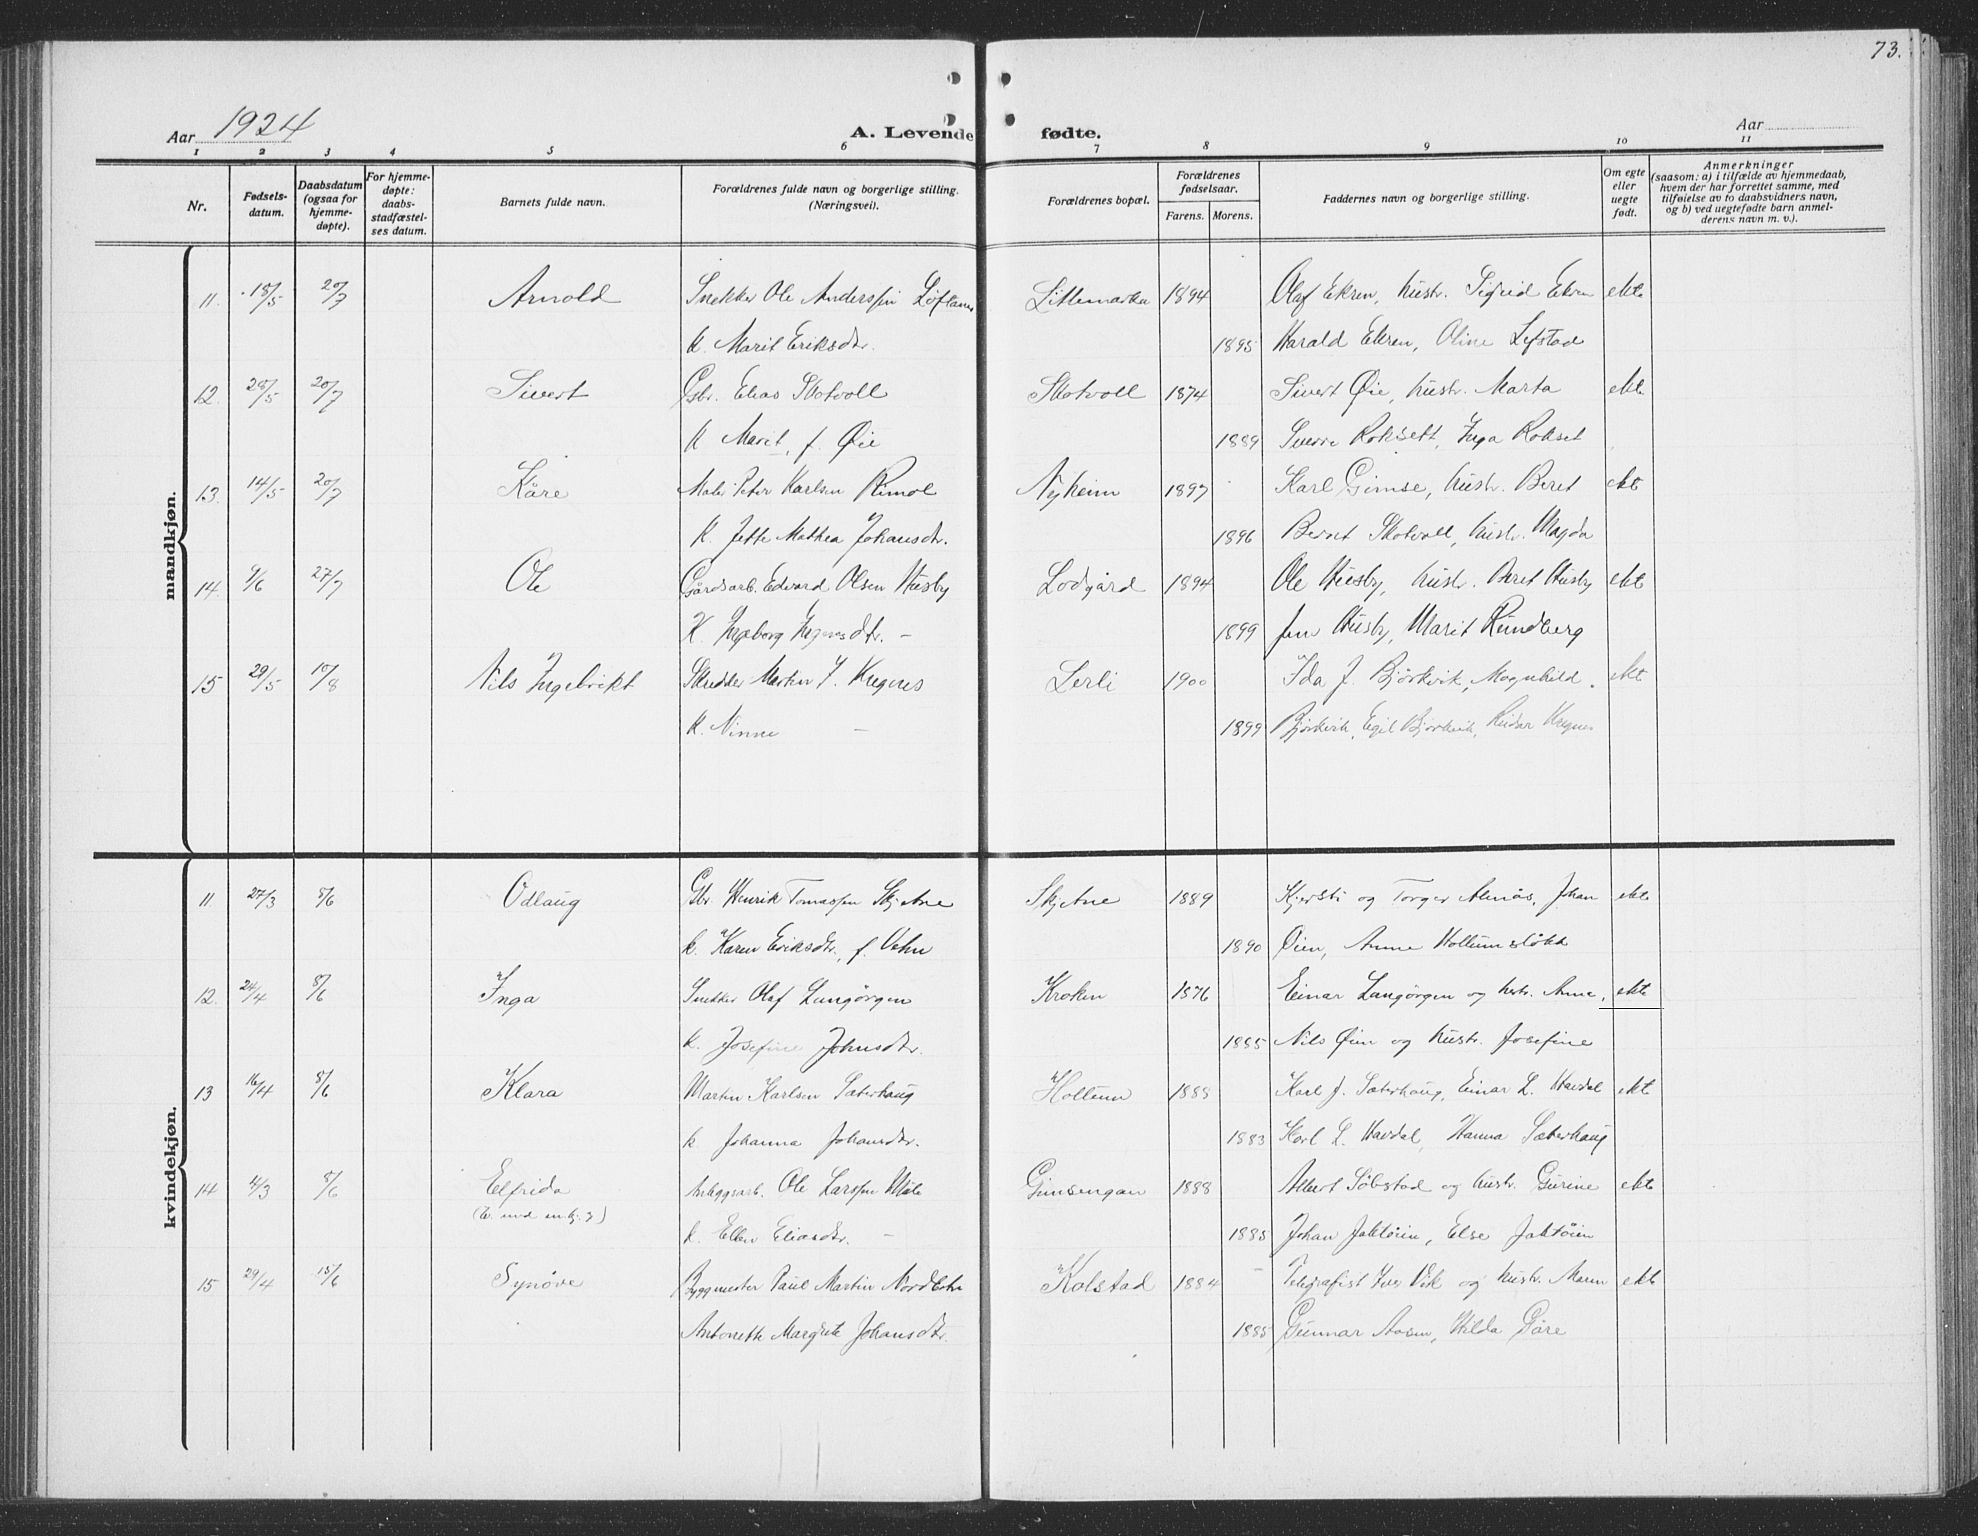 73.
Aar 1924
A. Levende fødte.
Aar
1 2 3 4 5 6 7 8 9 10 11
Nr.
Fødsels-
datum.
Daabsdatum
(ogsaa for
hjemme-
døpte).
For hjemme-
døpte:
daabs-
stadfæstel-
ses datum.
Barnets fulde navn.
Forældrenes fulde navn og borgerlige stilling.
(Næringsvei).
Forældrenes bopæl.
Forældrenes
fødselsaar.
Farens. Morens.
Faddernes navn og borgerlige stilling.
Om egte
eller
uegte
født.
Anmerkninger
(saasom: a) i tilfælde av hjemmedaab,
hvem der har forrettet samme, med
tilføielse av to daabsvidners navn,
og b) ved uegtefødte barn anmel-
derens navn m. v.).
mandkjøn.
11. 18/5 20/7 Arnold Snekker Ole Anderssen Løftamo Litlemarka 1894 Olaf Ekren, hustr. Sigrid Ekren ekte
k. Marit Eriksdtr. 1895 Harald Ekren, Oline Løfstad
12. 28/5 20/7 Sivert Gbr. Elias Skotvoll Skotvoll 1874 Sivert Øie, hustr. Marta ekte
k Marit, f. Øie 1889 Sverre Rokseth, Inga Rokset
13. 14/5 20/7 Kåre Maler Peter Karlsen Rimol Nyheim 1897 Karl Gimse, hustr. Beret ekt
k. Jette Mathea Johansdtr. 1896 Bernt Skotvoll, hustr. Magda
14. 9/6 27/7 Ole Gårdsarb. Edvard Olsen Husby Lodgård 1894 Ole Husby, hustr. Beret Husby ekt
K. Ingeborg dtr. - 1899 Jon Husby, Marit Rundberg
15 29/5 17/8 Nils Ingebrikt Skredder Martin J. Kregnes Lerli 1900 Ida J. Bjørkvik, Magnhild ekt
k. Ninni - 1899 Bjørkvik, Egil Bjørkvik, Reidar Kregnes
kvindekjøn.
11. 27/3 8/6 Odlaug Gbr. Henrik Tomassen Skjetne Skjetne 1889 Kjersti og Torger Almås, Johan ekte
k. Karen Eriksdtr., f. 1890 Øien, Anna Hollumsløkk
12. 24/4 8/6 Inga Snekker Olaf Langørgen Kroken 1876 Einar Langørgen og hustr. Anne, ekte
k. Josefine Johnsdtr. 1885 Nils Øien og hustr. Josefine
13 16/4 8/6 Klara Martin Karlsen Sæterhaug Hollum 1888 Karl J. Sæterhaug, Einar L. Havdal ekt
k Johanna Johansdtr. 1883 Karl L. Havdal, Hanna Sæterhaug
14 4/3 8/6 Elfrida Anleggsarb. Ole Larssen Mæle Gimsengan 1888 Albert Søbstad og hustr. Gurine ekte
k. Ellen Eliasdtr. - 1885 Johan Jaktøien, Else Jaktøien
15 29/4 15/6 Synøve Byggmester Paul Martin Nordbotn Kolstad 1884 - Telegrafist Iver Vik og hustr. Maren ekte
Antonette Margrete Johansdtr. 1885 Gunnar Aasen, Hilda Dåre